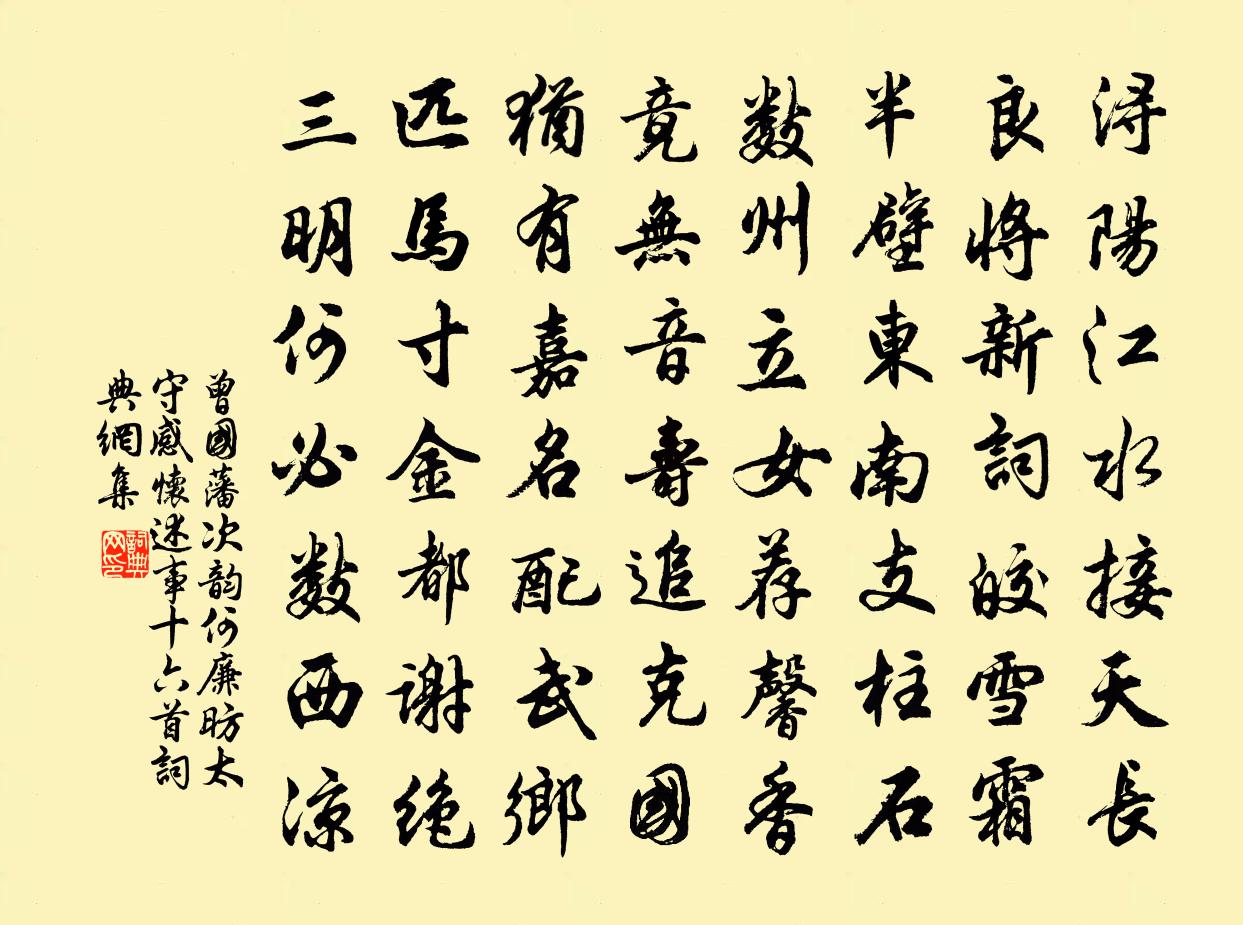 浔陽江水接天長
良將新詞皎雪霜
半壁東南支柱石
數州立女荐馨香
竟無音壽追克國
猶有嘉名配武鄉
匹馬寸金都謝绝
三明何必數西涼
曾國藩次韵何廉昉太
守感懷述事十六首詞
典網集
詞典
网印